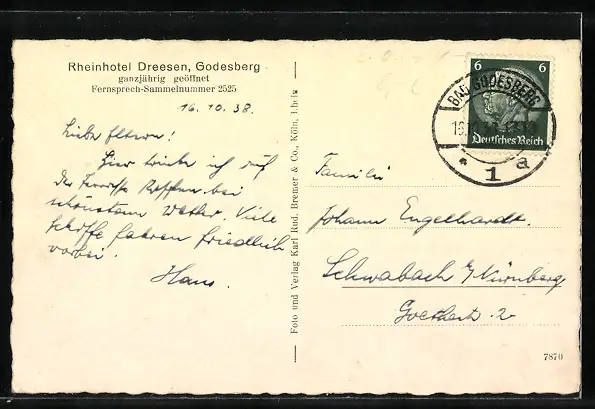 Rheinhotel Dreesen, Godesberg
ganzjährig geöffnet
Fernsprech-Sammelnummer 2525
16.10.38.
Liebe Eltern!
Hier trinke ich auf
der Terrasse Kaffee bei
schönstem Wetter. Viele
Schiffe fahren friedlich
vorbei.
Hans.
Foto und Verlag Karl Rud. Bremer & Co., Köln,
6 6
Deutsches Reich
BAD GODESBERG
1 a
Familie
Johann Engelhardt.
Schwabach b/Nürnberg
Goethestr. 2
7870